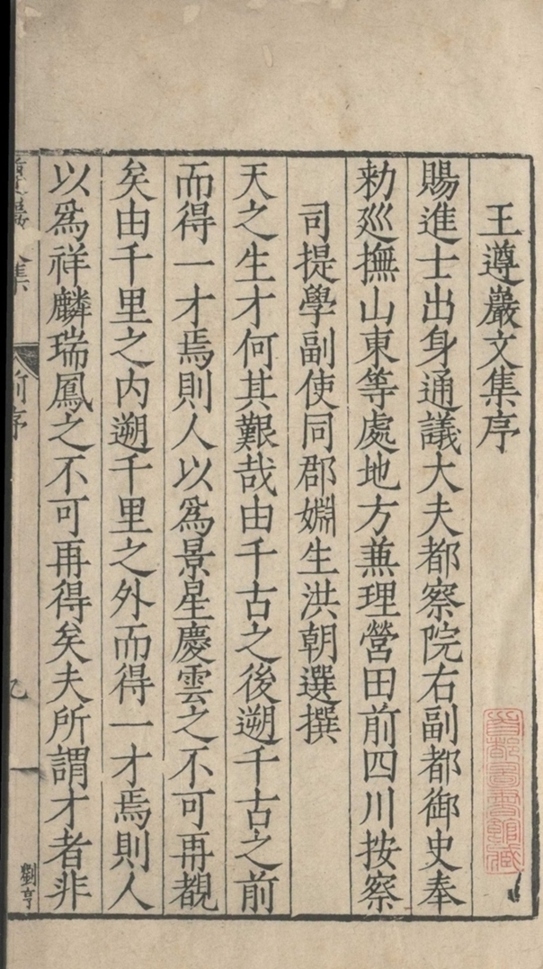 王遵巖文集序
賜進士出身通議大夫都察院右副都御史奉
勑廵撫山東等處地方蒹理營田前四川按察
司提學副使同郡婣生洪朝選撰
天之生才何其艱哉由千古之後遡千古之前
而得一才焉則人以爲景星慶雲之不可再覩
矣由千里之内遡千里之外而得一才焉則人
以爲祥麟瑞鳳之不可再得矣夫所謂才者非
集
序
劉亨
首都圖書館藏